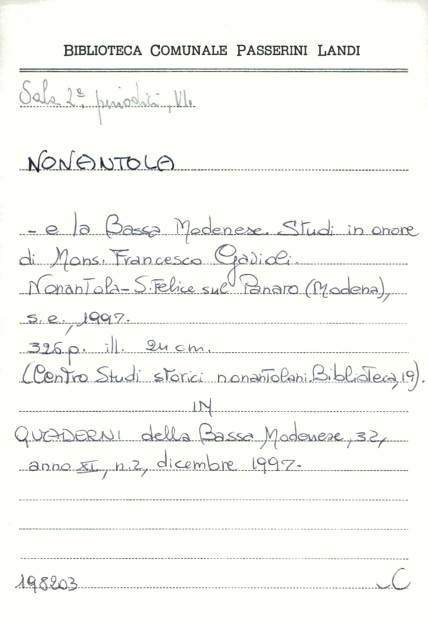 BIBLIOTECA COMUNALE PASSERINI LANDI
Sala 2ª periodici, VI.
NONANTOLA
- e la Bassa Modenese. Studi in onore
di Mons. Francesco Gavioli.
Nonantola - S. Felice sul Panaro (Modena),
s.e., 1997.
326 p. ill. 24 cm.
(Centro Studi storici nonantolani. Biblioteca, 19).
IN
QUADERNI della Bassa Modenese, 32,
anno XI, n.2, dicembre 1997.
198203